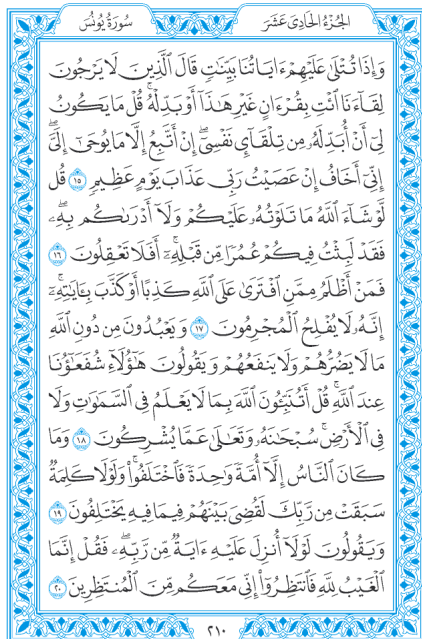 الجُزْءُ الحَادِي عَشَرَ
سُورَةُ يُونُسَ
وَإِذَا تُتۡلَىٰ عَلَيۡهِمۡ ءَايَاتُنَا بَيِّنَٰتٖ قَالَ ٱلَّذِينَ لَا يَرۡجُونَ
لِقَآءَنَا ٱئۡتِ بِقُرۡءَانٍ غَيۡرِ هَٰذَآ أَوۡ بَدِّلۡهُۚ قُلۡ مَا يَكُونُ
لِيٓ أَنۡ أُبَدِّلَهُۥ مِن تِلۡقَآيِٕ نَفۡسِيٓۖ إِنۡ أَتَّبِعُ إِلَّا مَا يُوحَىٰٓ إِلَيَّۖ
إِنِّيٓ أَخَافُ إِنۡ عَصَيۡتُ رَبِّي عَذَابَ يَوۡمٍ عَظِيمٖ ١٥ قُل
لَّوۡ شَآءَ ٱللَّهُ مَا تَلَوۡتُهُۥ عَلَيۡكُمۡ وَلَآ أَدۡرَىٰكُم بِهِۦۖ
فَقَدۡ لَبِثۡتُ فِيكُمۡ عُمُرٗا مِّن قَبۡلِهِۦٓۚ أَفَلَا تَعۡقِلُونَ ١٦
فَمَنۡ أَظۡلَمُ مِمَّنِ ٱفۡتَرَىٰ عَلَى ٱللَّهِ كَذِبًا أَوۡ كَذَّبَ بِـَٔايَٰتِهِۦٓۚ
إِنَّهُۥ لَا يُفۡلِحُ ٱلۡمُجۡرِمُونَ ١٧ وَيَعۡبُدُونَ مِن دُونِ ٱللَّهِ
مَا لَا يَضُرُّهُمۡ وَلَا يَنفَعُهُمۡ وَيَقُولُونَ هَٰٓؤُلَآءِ شُفَعَٰٓؤُنَا
عِندَ ٱللَّهِۚ قُلۡ أَتُنَبِّـُٔونَ ٱللَّهَ بِمَا لَا يَعۡلَمُ فِي ٱلسَّمَٰوَٰتِ وَلَا
فِي ٱلۡأَرۡضِۚ سُبۡحَٰنَهُۥ وَتَعَٰلَىٰ عَمَّا يُشۡرِكُونَ ١٨ وَمَا
كَانَ ٱلنَّاسُ إِلَّآ أُمَّةٗ وَٰحِدَةٗ فَٱخۡتَلَفُواْۚ وَلَوۡلَا كَلِمَةٞ
سَبَقَتۡ مِن رَّبِّكَ لَقُضِيَ بَيۡنَهُمۡ فِيمَا فِيهِ يَخۡتَلِفُونَ ١٩
وَيَقُولُونَ لَوۡلَآ أُنزِلَ عَلَيۡهِ ءَايَةٞ مِّن رَّبِّهِۦۖ فَقُلۡ إِنَّمَا
ٱلۡغَيۡبُ لِلَّهِ فَٱنتَظِرُوٓاْ إِنِّي مَعَكُم مِّنَ ٱلۡمُنتَظِرِينَ ٢٠
٢١٠